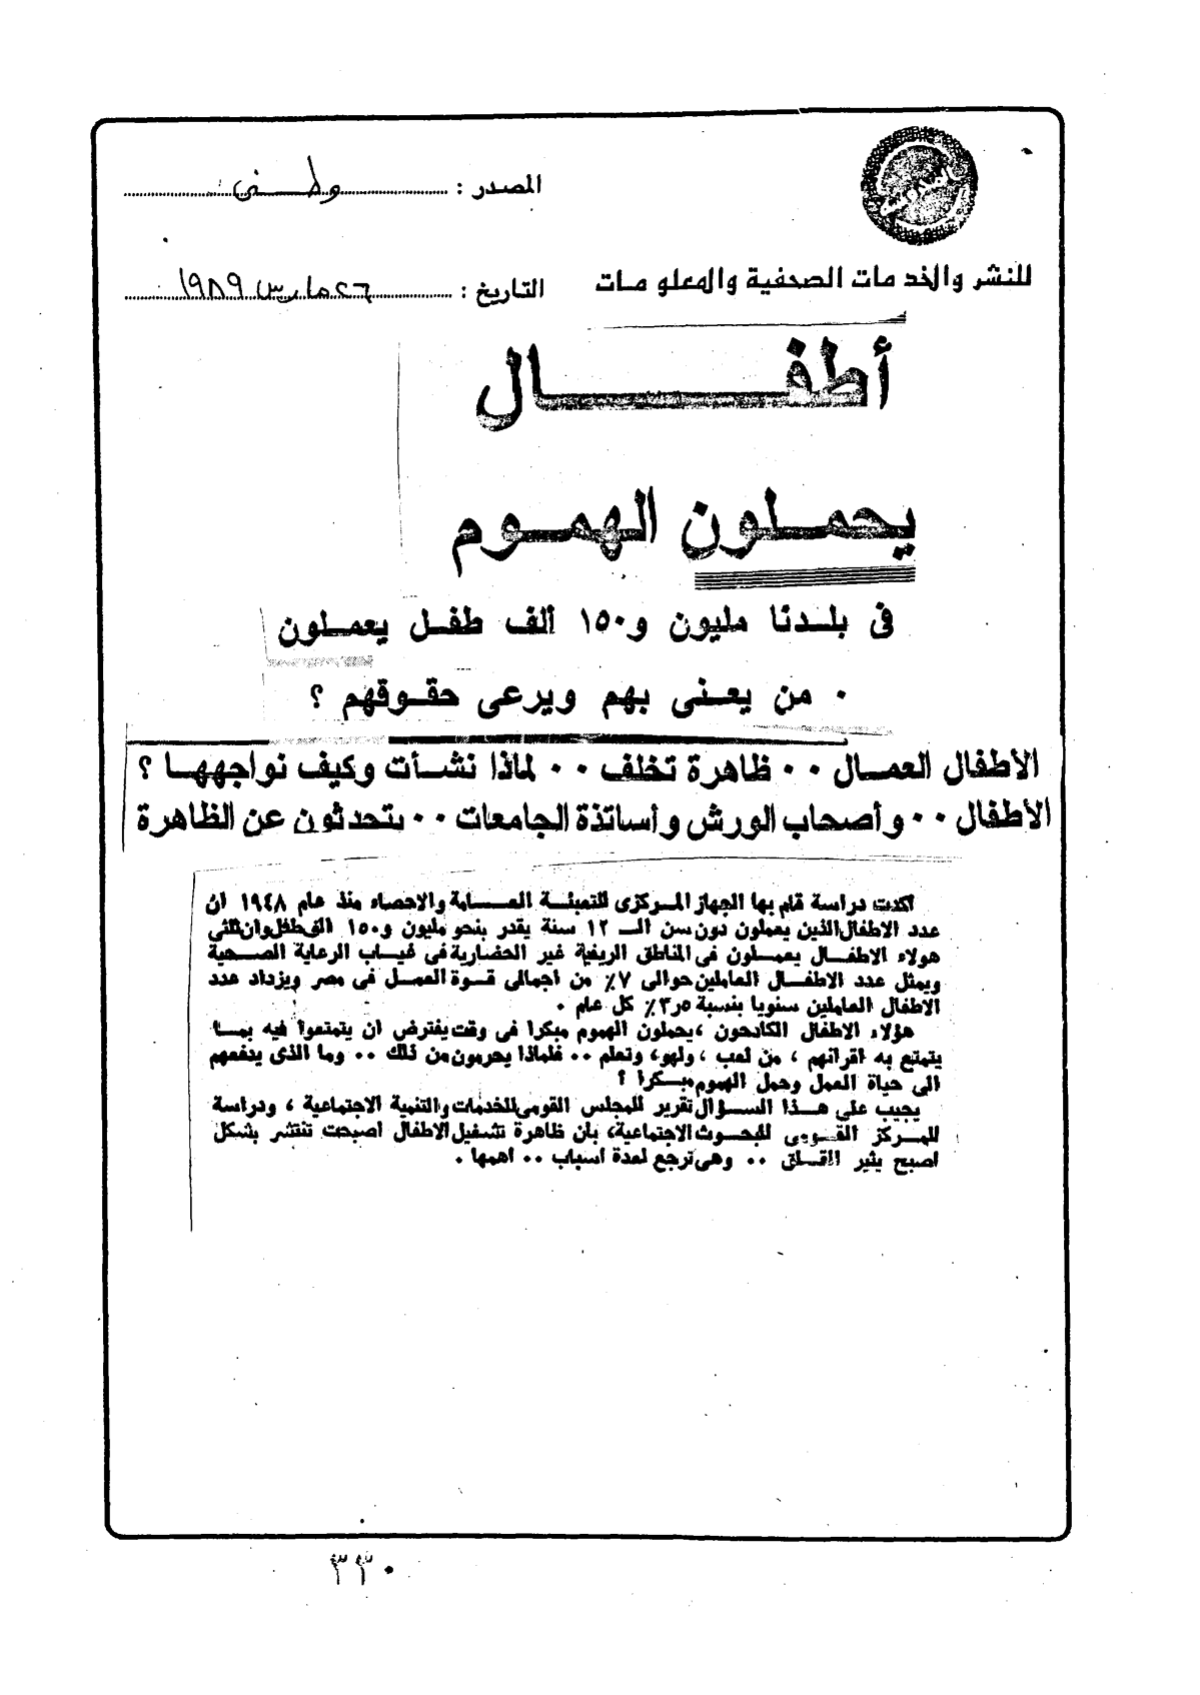 المصدر : وطنى
للنشر والخدمات الصحفية والمعلومات
التاريخ : ٢٦ مارس ١٩٨٩
أطفال
يحملون الهموم
فى بلدنا مليون و١٥٠ ألف طفل يعملون
٠ من يعنى بهم ويرعى حقوقهم ؟
الأطفال العمال ٠٠ ظاهرة تخلف ٠٠ لماذا نشأت وكيف نواجهها ؟
الأطفال ٠٠ وأصحاب الورش وأساتذة الجامعات ٠٠ يتحدثون عن الظاهرة
اكدت دراسة قام بها الجهاز المركزى للتعبئة العامة والاحصاء منذ عام ١٩٤٨ ان
عدد الاطفال الذين يعملون دون سن الـ ١٢ سنة يقدر بنحو مليون و١٥٠ الف طفل وان ثلثى
هولاء الاطفال يعملون فى المناطق الريفية غير الحضارية فى غياب الرعاية الصحية
ويمثل عدد الاطفال العاملين حوالى ٧٪ من اجمالى قوة العمل فى مصر ويزداد عدد
الاطفال العاملين سنويا بنسبة ٣٫٥٪ كل عام ٠
هؤلاء الاطفال الكادحون ، يحملون الهموم مبكرا فى وقت يفترض ان يتمتعوا فيه بما
يتمتع به اقرانهم ، من لعب ، ولهو، وتعلم ٠٠ فلماذا يحرمون من ذلك ٠٠ وما الذى يدفعهم
الى حياة العمل وحمل الهموم مبكرا ؟
يجيب على هذا السؤال تقرير للمجلس القومى للخدمات والتنمية الاجتماعية ، ودراسة
للمركز القومى للبحوث الاجتماعية، بأن ظاهرة تشغيل الاطفال اصبحت تنتشر بشكل
اصبح يثير القلق ٠٠ وهى ترجع لعدة اسباب ٠٠ اهمها ٠
٣٣٠